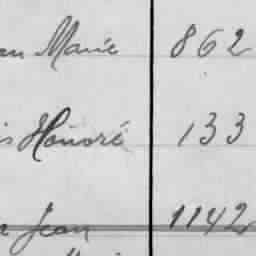 an Marie 862
is Honoré 133
Jean 1142